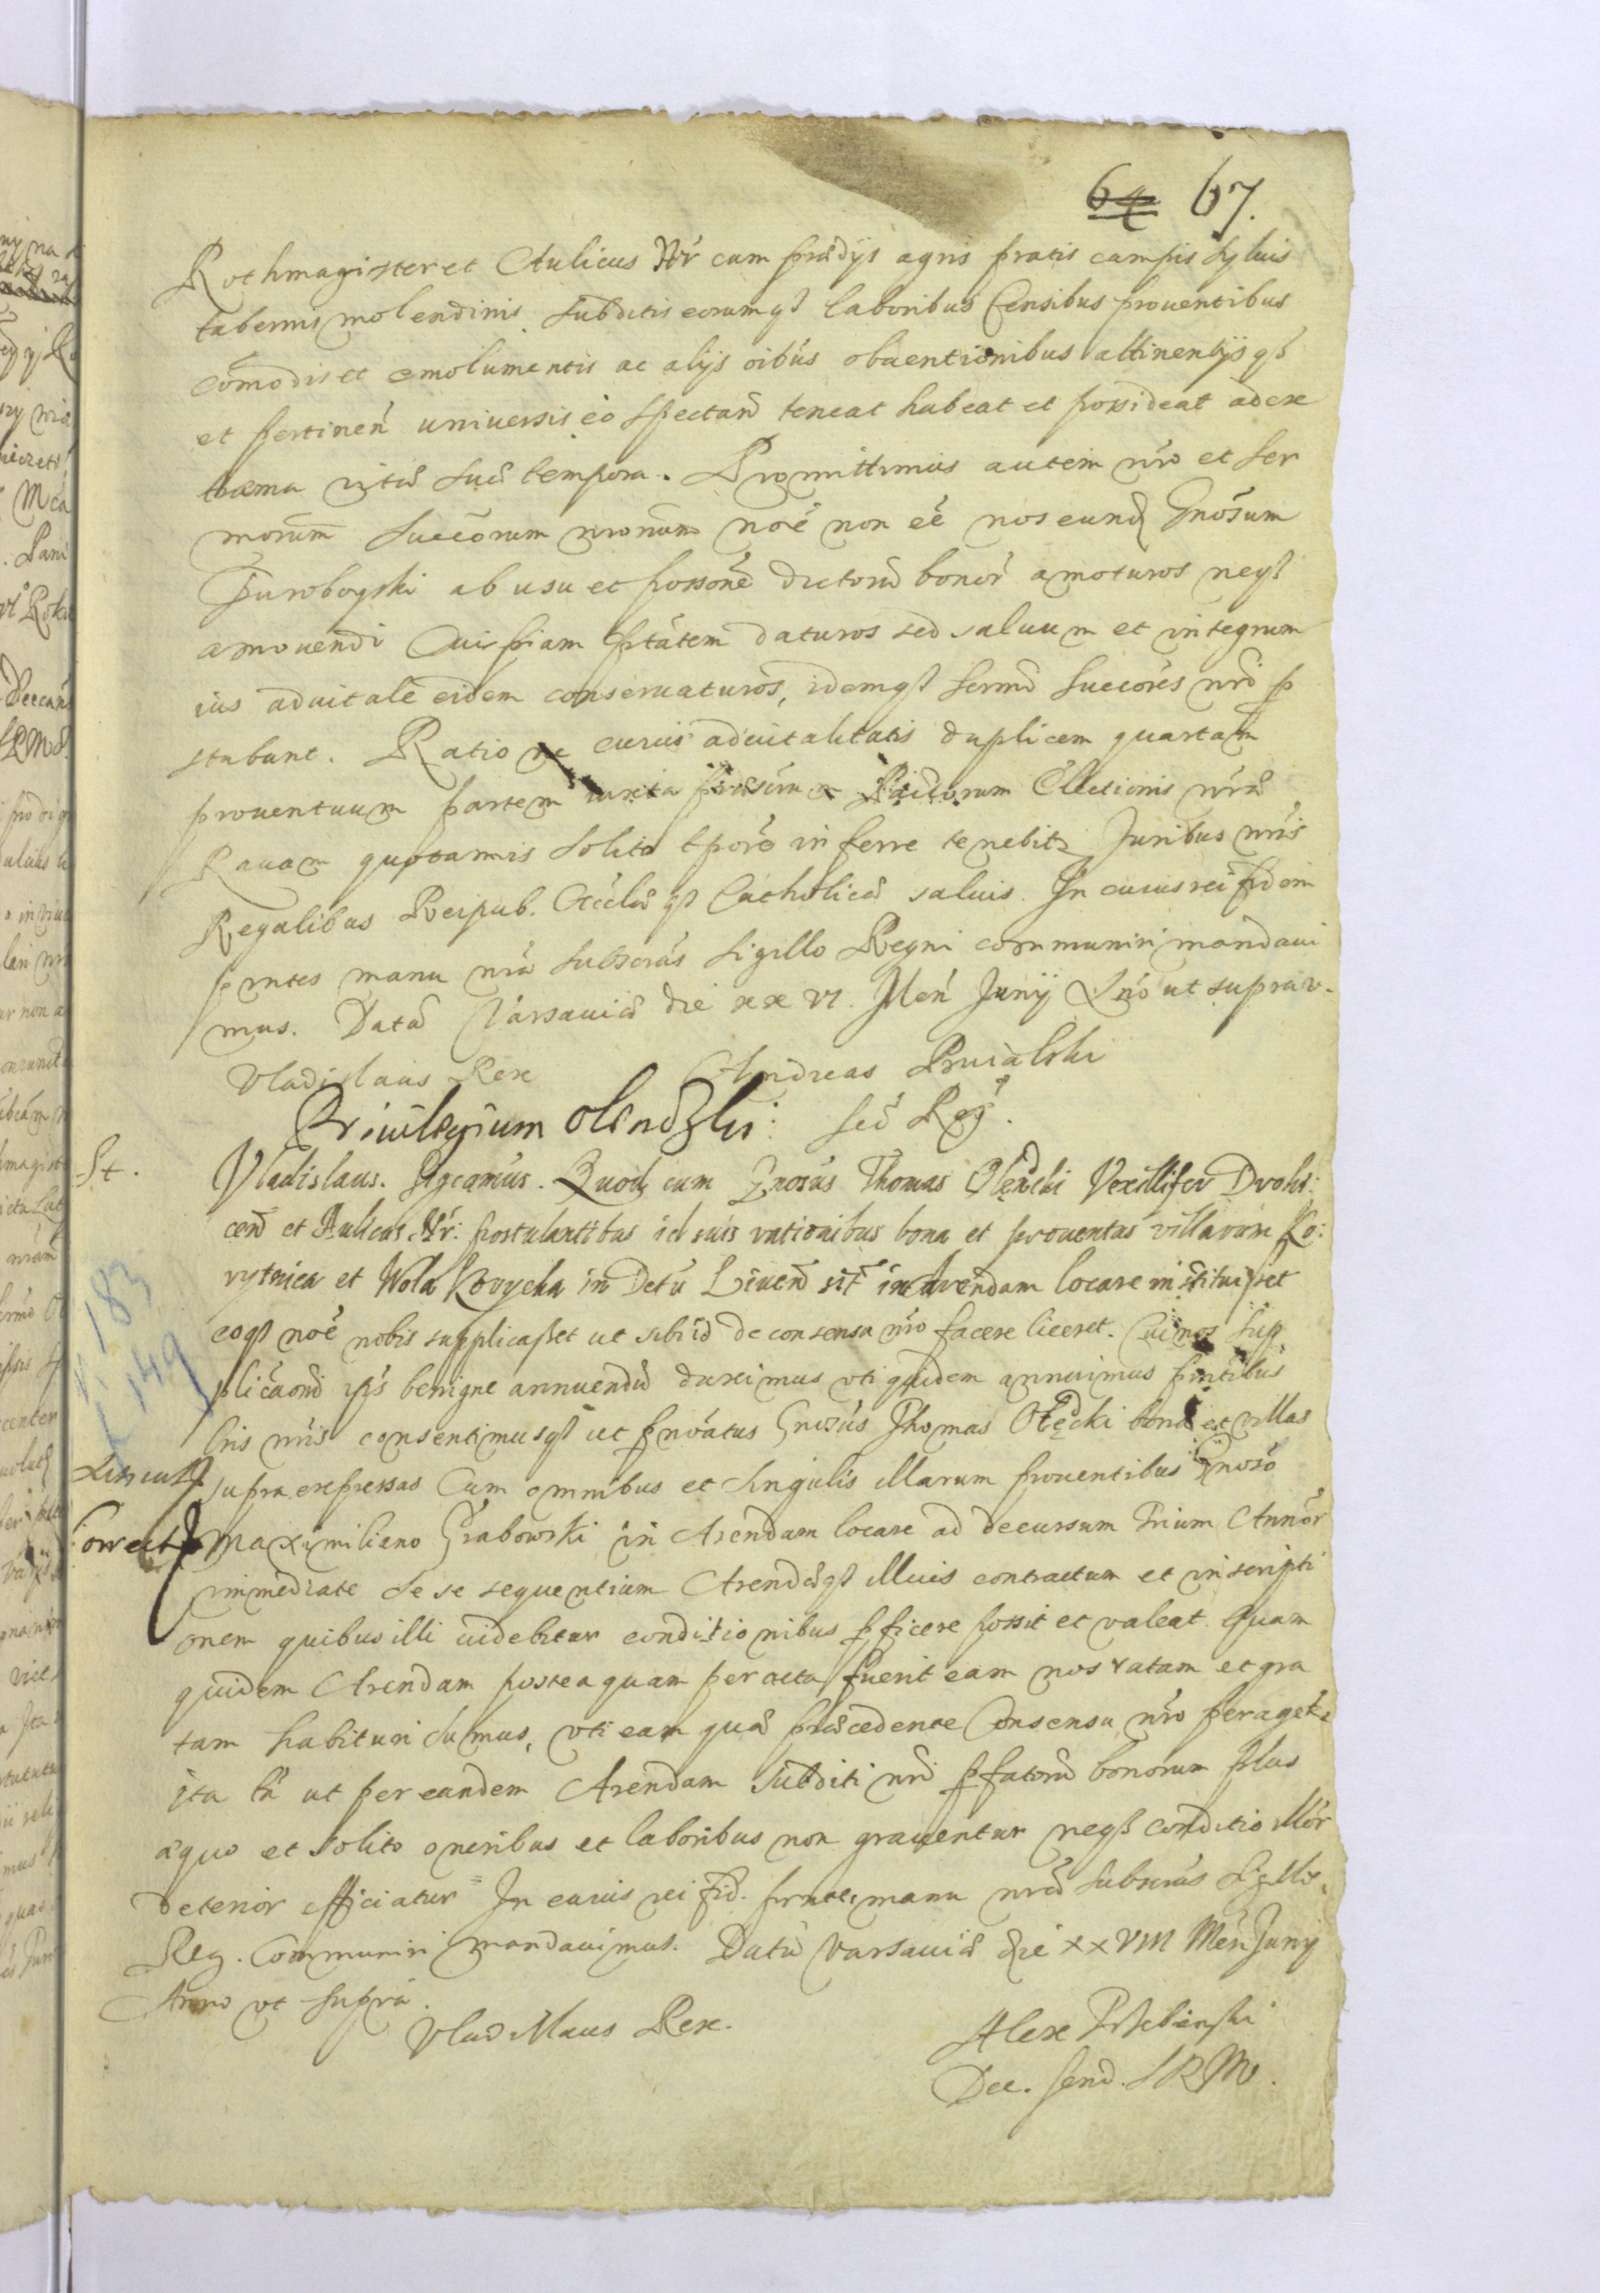 64 67.
Rothmagister et Aulicus Nr̃ cum prædijs agris pratis campis syluis
tabernis molendinis subditis eorumq3 laboribus Censibus prouentibus
com̃odis et emolumentis ac alijs oĩbus obuentionibus attinentijsq3
et pertineñ uniuersis eò spectañ teneat habeat et possideat ad ex
træma vitæ suæ tempora. Promittimus autem nr̃o et Ser
morum Succorum nrorum noẽ non eẽ nos eund Gnõsum
ab usu et possone dictorũ bonor amoturos neq3
amouendi Cuipiam ptãtem daturos sed saluum et integrum
ius aduitale eidem conseruaturos, idemq3 sermi Succõres nr̃i p
stabunt. Ratione cuius aduitalitatis duplicem quartam
prouentuum partem iuxta Pactorum Electionis nr̃æ
Rauam quotannis solito tpore inferre tenebit Juribus nr̃is
Regalibus Reipub. Eccliæ q3 Catholicæ saluis. In cuius rei fidem
pr̃ntes manu nr̃a subscras Sigillo Regni communiri mandaui
mus. Datũ Varsauiæ die xxvi. Men̄ Junij Año ut supra.
Vladislaus Rex Andreas
Priuilegium Olendzki: Sec̃ Reg̃.
St. Vladislaus. Sigcamus. Quod cum Gnosus Thomas Olendcki Vexillifer Drohi:
ceñ et Aulicus Nr̃: postulantibus id suis rationibus bona et prouentus villarum Ko:
rytnica et Wola Korycka in Distu Liueñ sit in Arendam locare instituisset
eoq3 noẽ nobis supplicasset ut sibi id de consensu nr̃o facere liceret. Cui nos sup
plicãoni ipis benigne annuendũ duximus uti quidem annuimus pr̃ntibus
lris nr̃is consentimusq3 ut pnoatus Gnosus Thomas Ołędcki bona et villas
supra expressas Cum omnibus et singulis illarum prouentibus Gnoso
Correct Maximiliano Grabowski in Arendam locare ad decursum Trium Annor̃
immediate se se sequentium Arendæq3 illius contractum et inscripti
onem quibus illi uidebitur conditionibus pficere possit et valeat. Quam
quidem Arendam posteaquam peracta fuerit eam nos ratam et gra
tam habituri sumus, uti eam quæ præcedente Consensu nr̃o peraget
ita tñ ut per eandem Arendam Subditi nr̃i pfatorũ bonorum plus
æquo et solito oneribus et laboribus non grauentur neq3 conditio illor̃
deterior efficiatur. In cuius rei fid. pr̃ntes manu nr̃a subscras Sigillo
Reg. Communiri mandauimus. Datũ Varsauiæ die xxVIII Men̄ Junij
Anno ut supra.
Vladislaus Rex.
Alex Trzebinski
Dec. Send. S R M.
183
149